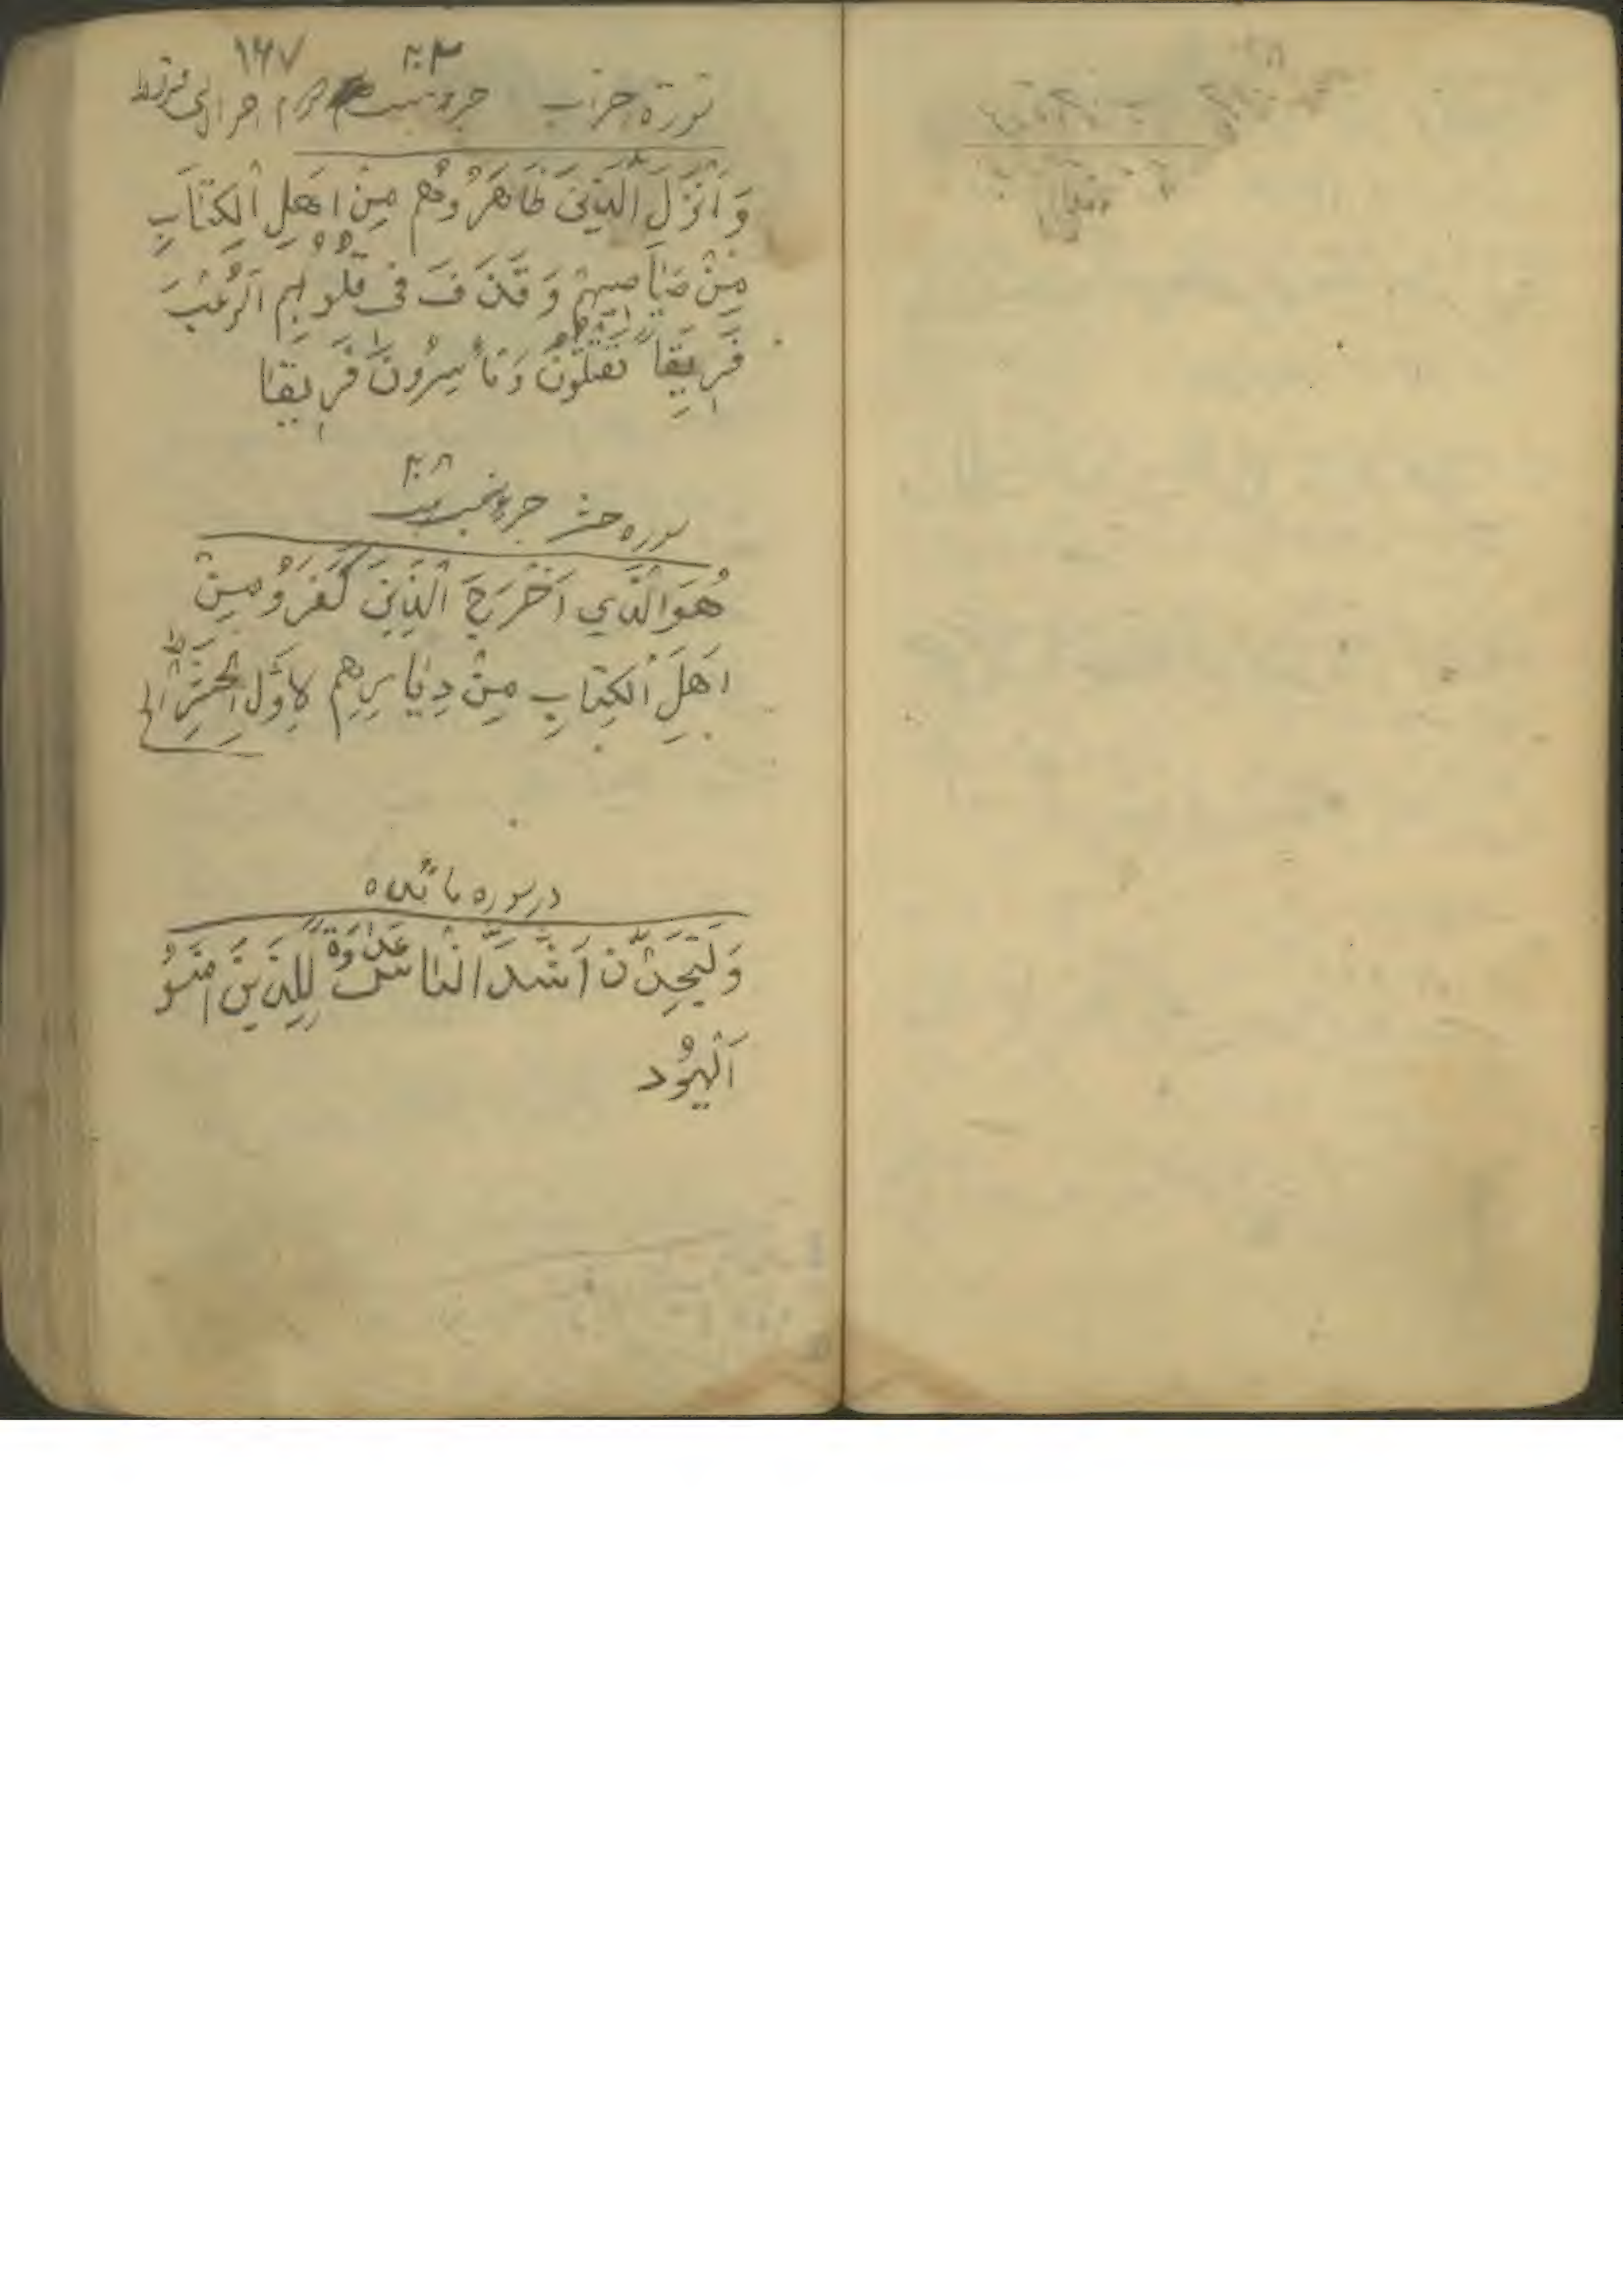 ۱۶۷ ۲۰۳
سورة احزاب جزء بیست
وَاَنْزَلَ الَّذِیْنَ ظَاهَرُوْهُم مِنْ اَهْلِ الْكِتَابِ
مِنْ صَیَاصِیهِمْ وَ قَذَفَ فِی قُلُوْبِهِم الرُّعْبَ
فَرِیقاً تَقْتُلُوْنَ وَتَأْسِرُوْنَ فَرِیقاً
سوره حشر جزء
هُوَ الَّذِي اَخْرَجَ الَّذِینَ كَفَرُوْ مِنْ
اَهْلِ الْكِتَابِ مِنْ دِیَارِهِم لِاَوَّلِ الْحَشْرِ الی
در سوره مائده
وَلَتَجِدَنَّ اَشَدَّ النَّاس عَدَاوَةً لِلَّذِینَ امَنُوْ
اَلْیَهُوْد